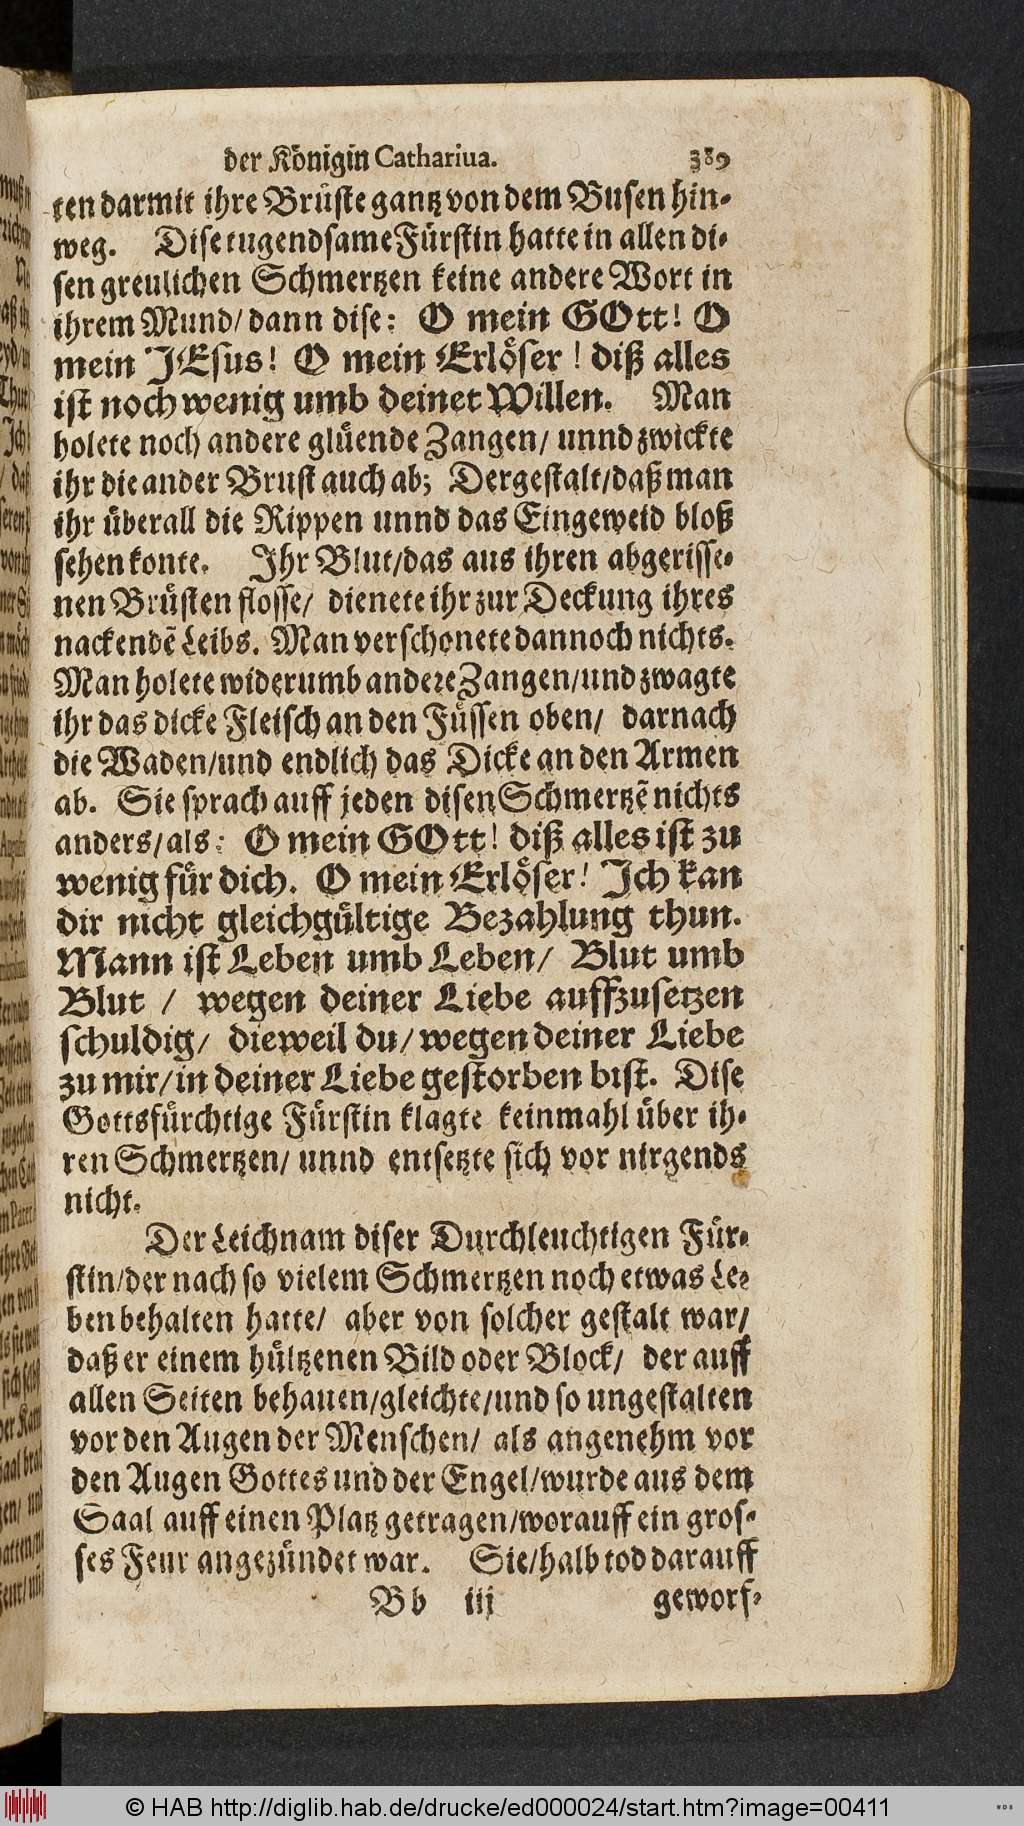 der Königin Cathariua. 389
ten darmit ihre Brüste gantz von dem Busen hin-
weg. Dise tugendsame Fürstin hatte in allen di-
sen greulichen Schmertzen keine andere Wort in
ihrem Mund/ dann dise: O mein GOtt! O
mein JEsus! O mein Erlöser! diß alles
ist noch wenig umb deinet Willen. Man
holete noch andere glüende Zangen/ unnd zwickte
ihr die ander Brust auch ab; Dergestalt/ daß man
ihr überall die Rippen unnd das Eingeweid bloß
sehen konte. Ihr Blut/ das aus ihren abgerisse-
nen Brüsten flosse/ dienete ihr zur Deckung ihres
nackendẽ Leibs. Man verschonete dannoch nichts.
Man holete widerumb andere Zangen/ und zwagte
ihr das dicke Fleisch an den Füssen oben/ darnach
die Waden/ und endlich das Dicke an den Armen
ab. Sie sprach auff jeden disen Schmertzẽ nichts
anders/ als: O mein GOtt! diß alles ist zu
wenig für dich. O mein Erlöser! Ich kan
dir nicht gleichgültige Bezahlung thun.
Mann ist Leben umb Leben/ Blut umb
Blut / wegen deiner Liebe auffzusetzen
schuldig/ dieweil du/ wegen deiner Liebe
zu mir/ in deiner Liebe gestorben bist. Dise
Gottsfürchtige Fürstin klagte keinmahl über ih-
ren Schmertzen/ unnd entsetzte sich vor nirgends
nicht.
Der Leichnam diser Durchleuchtigen Für-
stin/ der nach so vielem Schmertzen noch etwas Le-
ben behalten hatte/ aber von solcher gestalt war/
daß er einem hültzenen Bild oder Block/ der auff
allen Seiten behauen/ gleichte/ und so ungestalten
vor den Augen der Menschen/ als angenehm vor
den Augen Gottes und der Engel/ wurde aus dem
Saal auff einen Platz getragen/ worauff ein gros-
ses Feur angezündet war. Sie/ halb tod darauff
Bb iij geworf-
© HAB http://diglib.hab.de/drucke/ed000024/start.htm?image=00411